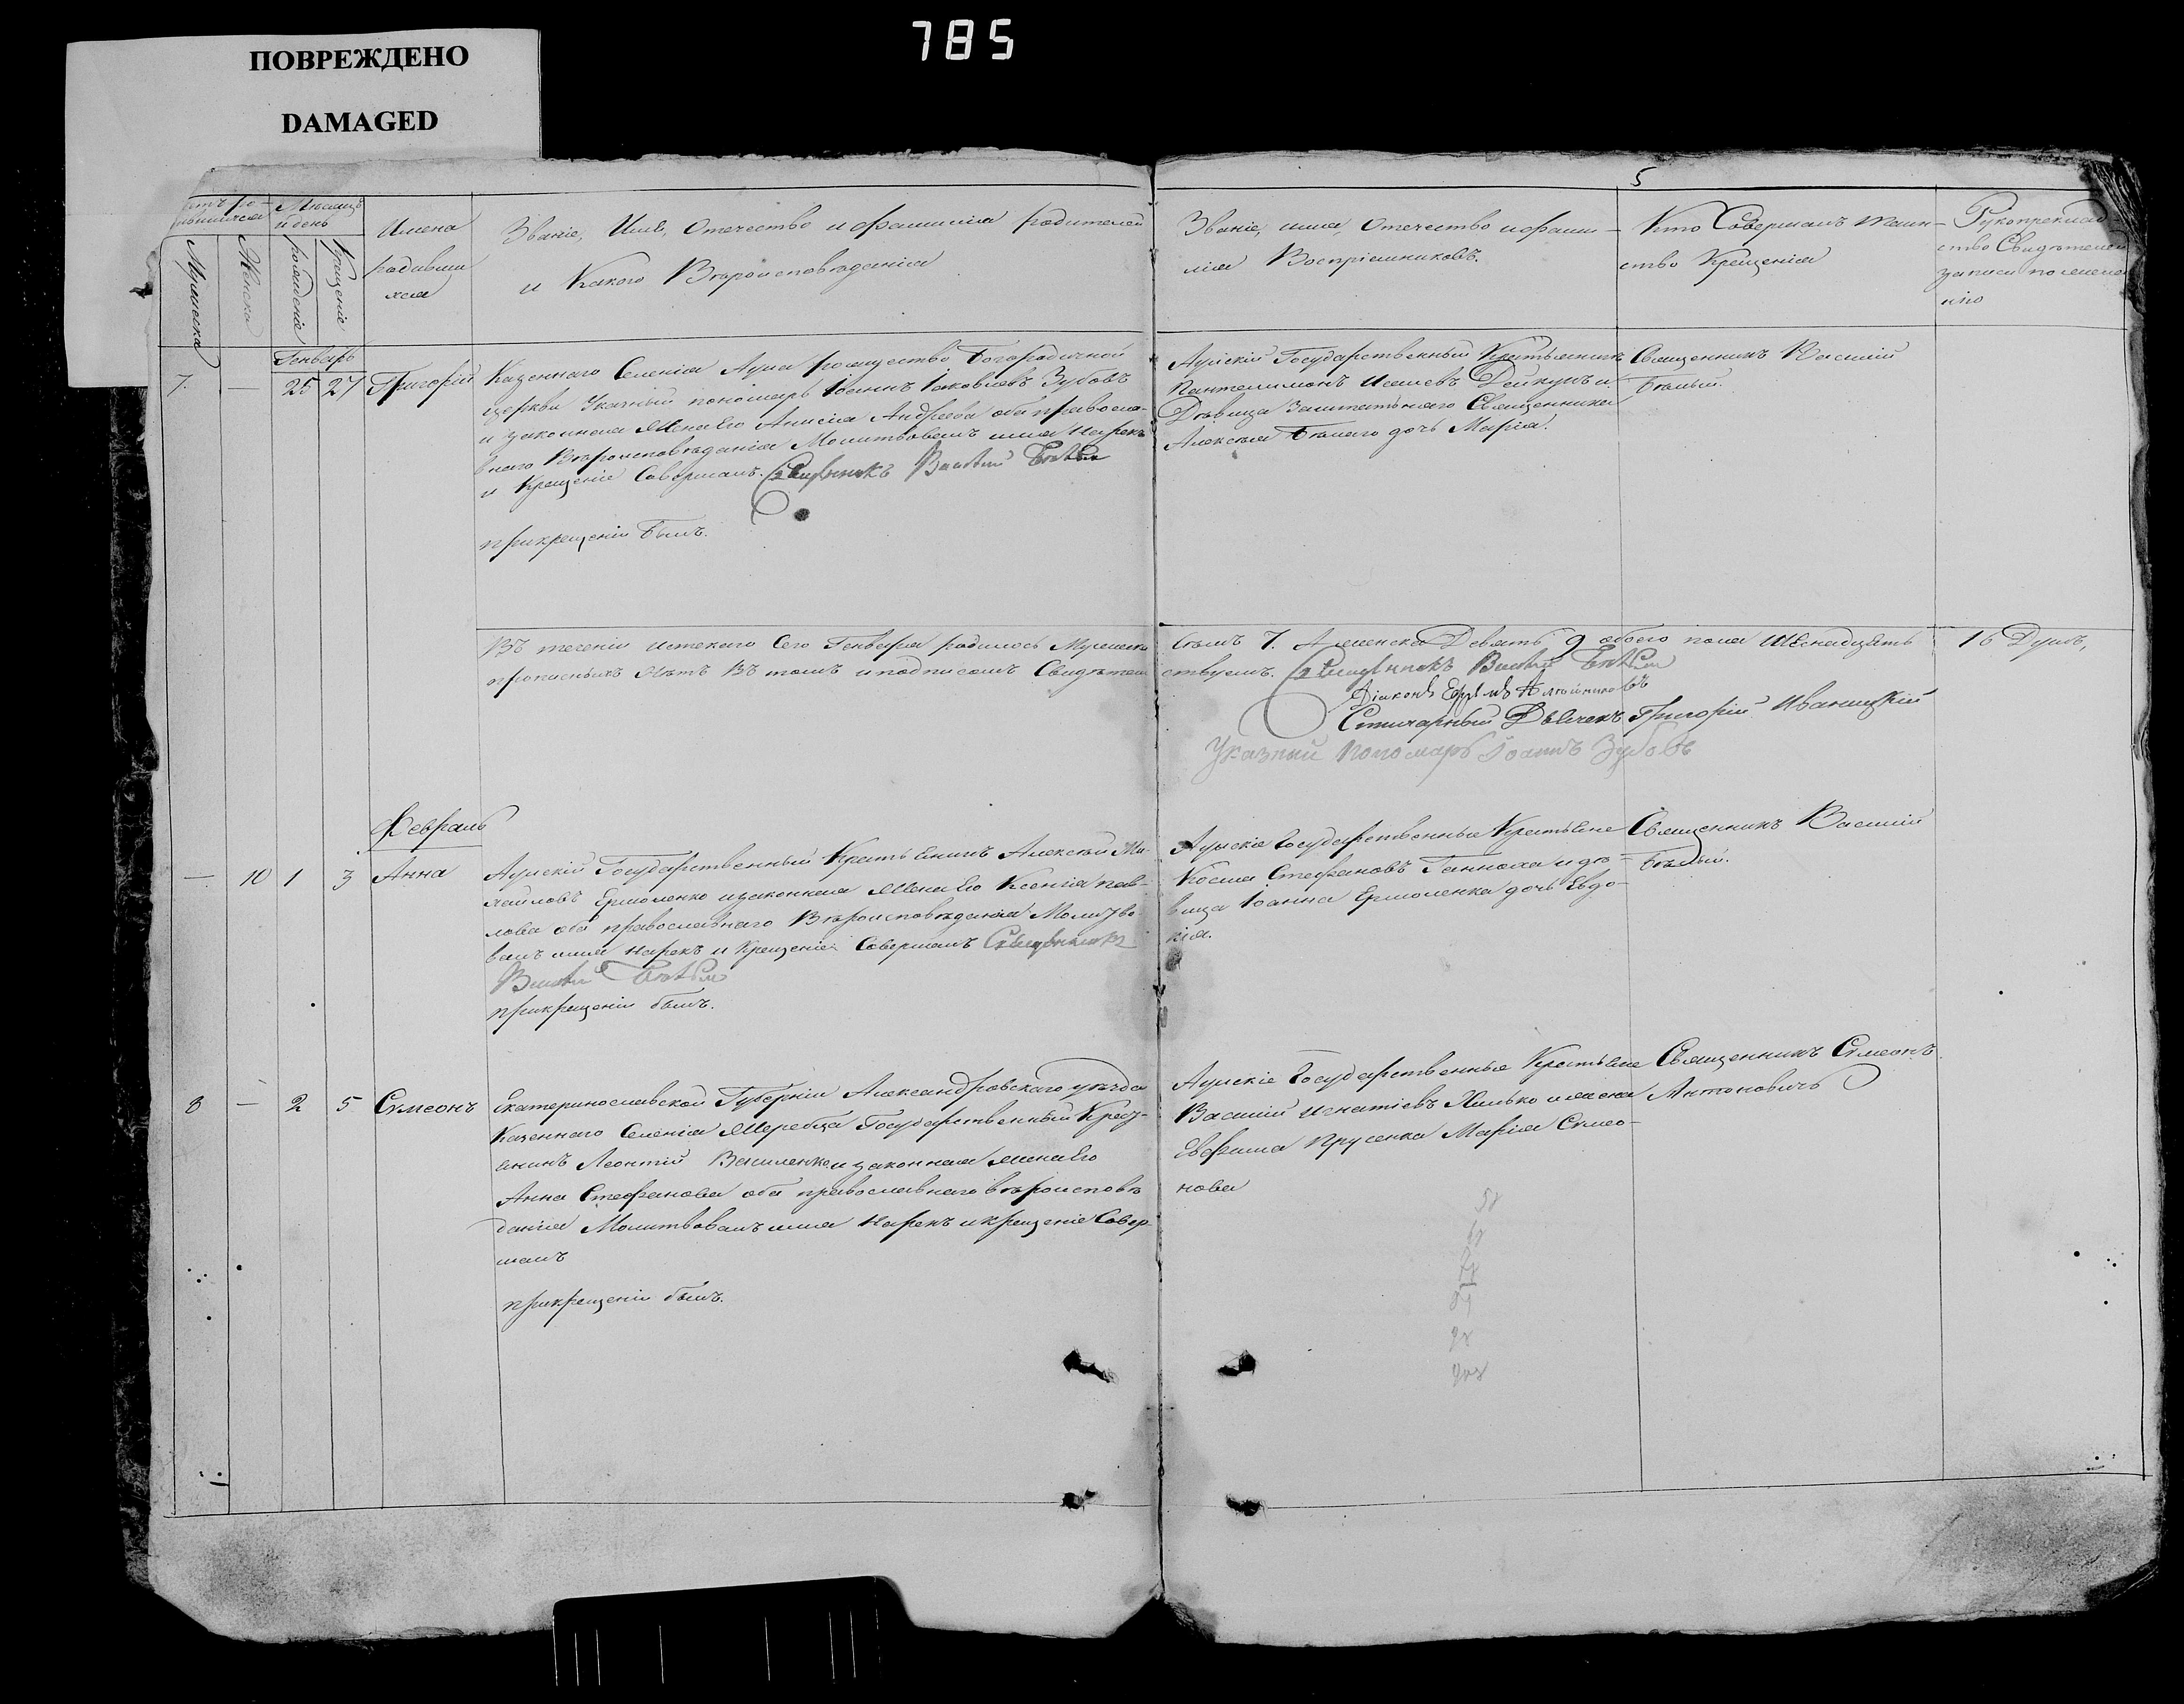 785
ПОВРЕЖДЕНО
DAMAGED
5
Мѣсяцъ
и день
Мужеска
Женска
рожденіе
Крещеніе
Имена
родивши
хся
Званіе, Имя, Отечество и фамилія родителей
и Какого Вѣроисповѣданія
Званіе, имя, Отечество и фами-
лія Воспріемниковъ.
Кто Совершалъ таин-
ство Крещенія
Рукоприклад-
ство Свидѣтелей
записи по
Генварь
7. — 25 27 Григорій
Казеннаго Селенія Аула рождество Богородичной
церкви Указный пономарь Іоаннъ Іаковлевъ Зубовъ
и законная Жена Его Анисія Андреева оба правосла-
внаго Вѣроисповѣданія Молитвовалъ имя Нарекъ
и Крещеніе Совершалъ. Священникъ Василій Бѣлый
прикрещеніи былъ.
Аулскій Государственный Крестьянинъ
Пантелимонъ Исаиевъ Дейкунъ и
Дѣвица Заштатнаго Священника
Алексѣя Бѣлаго дочь Марія.
Священникъ Василій
Бѣлый.
Въ теченіи истекшаго Сего Генваря родилось Мужеска
прописныхъ Нѣтъ Въ томъ и подписомъ Свидѣтель
7. А женска Девять 9 обоего пола Шеснадцять
16 Душъ,
ствуемъ. Священникъ Василій Бѣлый
Діаконъ
Стихарный Дьячекъ Григорій Иваницкій
Указный Пономарь Іоаннъ Зубовъ
Февраль
— 10 1 3 Анна
Аулскій Государственный Крестьянинъ Алексѣй Ми-
хайловъ Ермоленко и законная Жена Его Ксенія пав-
лова оба православнаго Вѣроисповѣданія Молитво-
валъ имя Нарекъ и Крещеніе Совершалъ Священникъ
Василій Бѣлый
прикрещеніи былъ.
Аулскіе Государственные Крестьяне
Косма Стефановъ Ганноха и дѣ-
вица Іоанна Ермоленка дочь Евдо-
кія.
Священникъ Василій
Бѣлый.
8 — 2 5 Сѵмеонъ
Екатеринославской Губерніи Александровскаго уѣзда
Казеннаго Селенія Жеребца Государственный Крест-
янинъ Леонтій Василенко и законная жена Его
Анна Стефанова оба православнаго вѣроисповѣ
данія Молитвовалъ имя Нарекъ и крещеніе Совер
шалъ
прикрещеніи былъ.
Аулскіе Государственные Крестьяне
Василій Игнатіевъ Хилько и жена
Евфима Прусенка Марія Сѵмео-
нова
Священникъ Сѵмеонъ
Антоновичъ